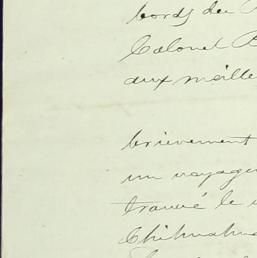 bords du
Colonel B
aux meille
brievement
un voyage
trouvé le
Chihuahua